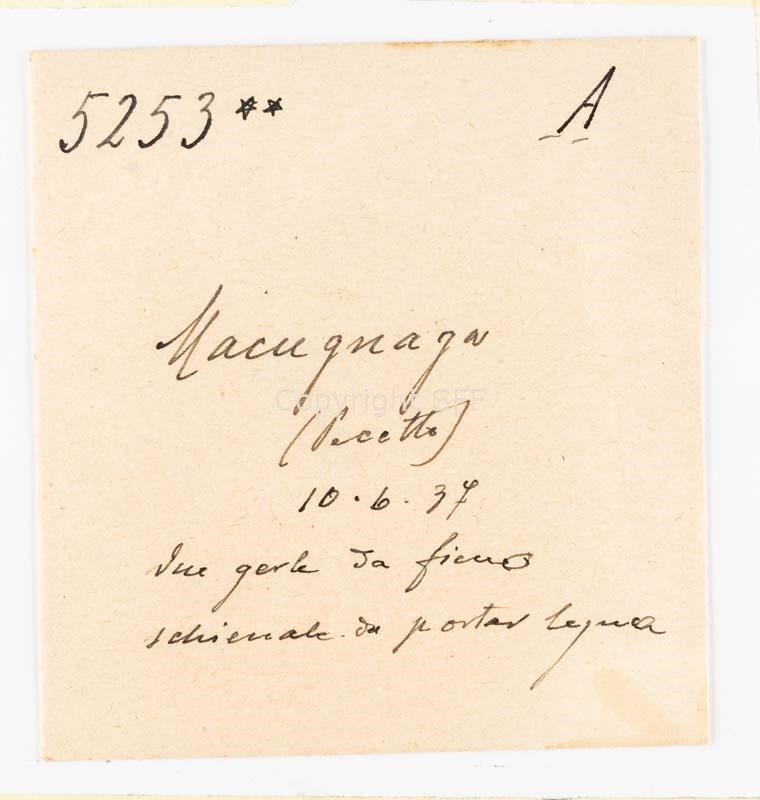 5253** A
Macugnaga
Copyright SFF
(Pecetto)
10.6.37
due gerle da fieno
schienale da portar legna